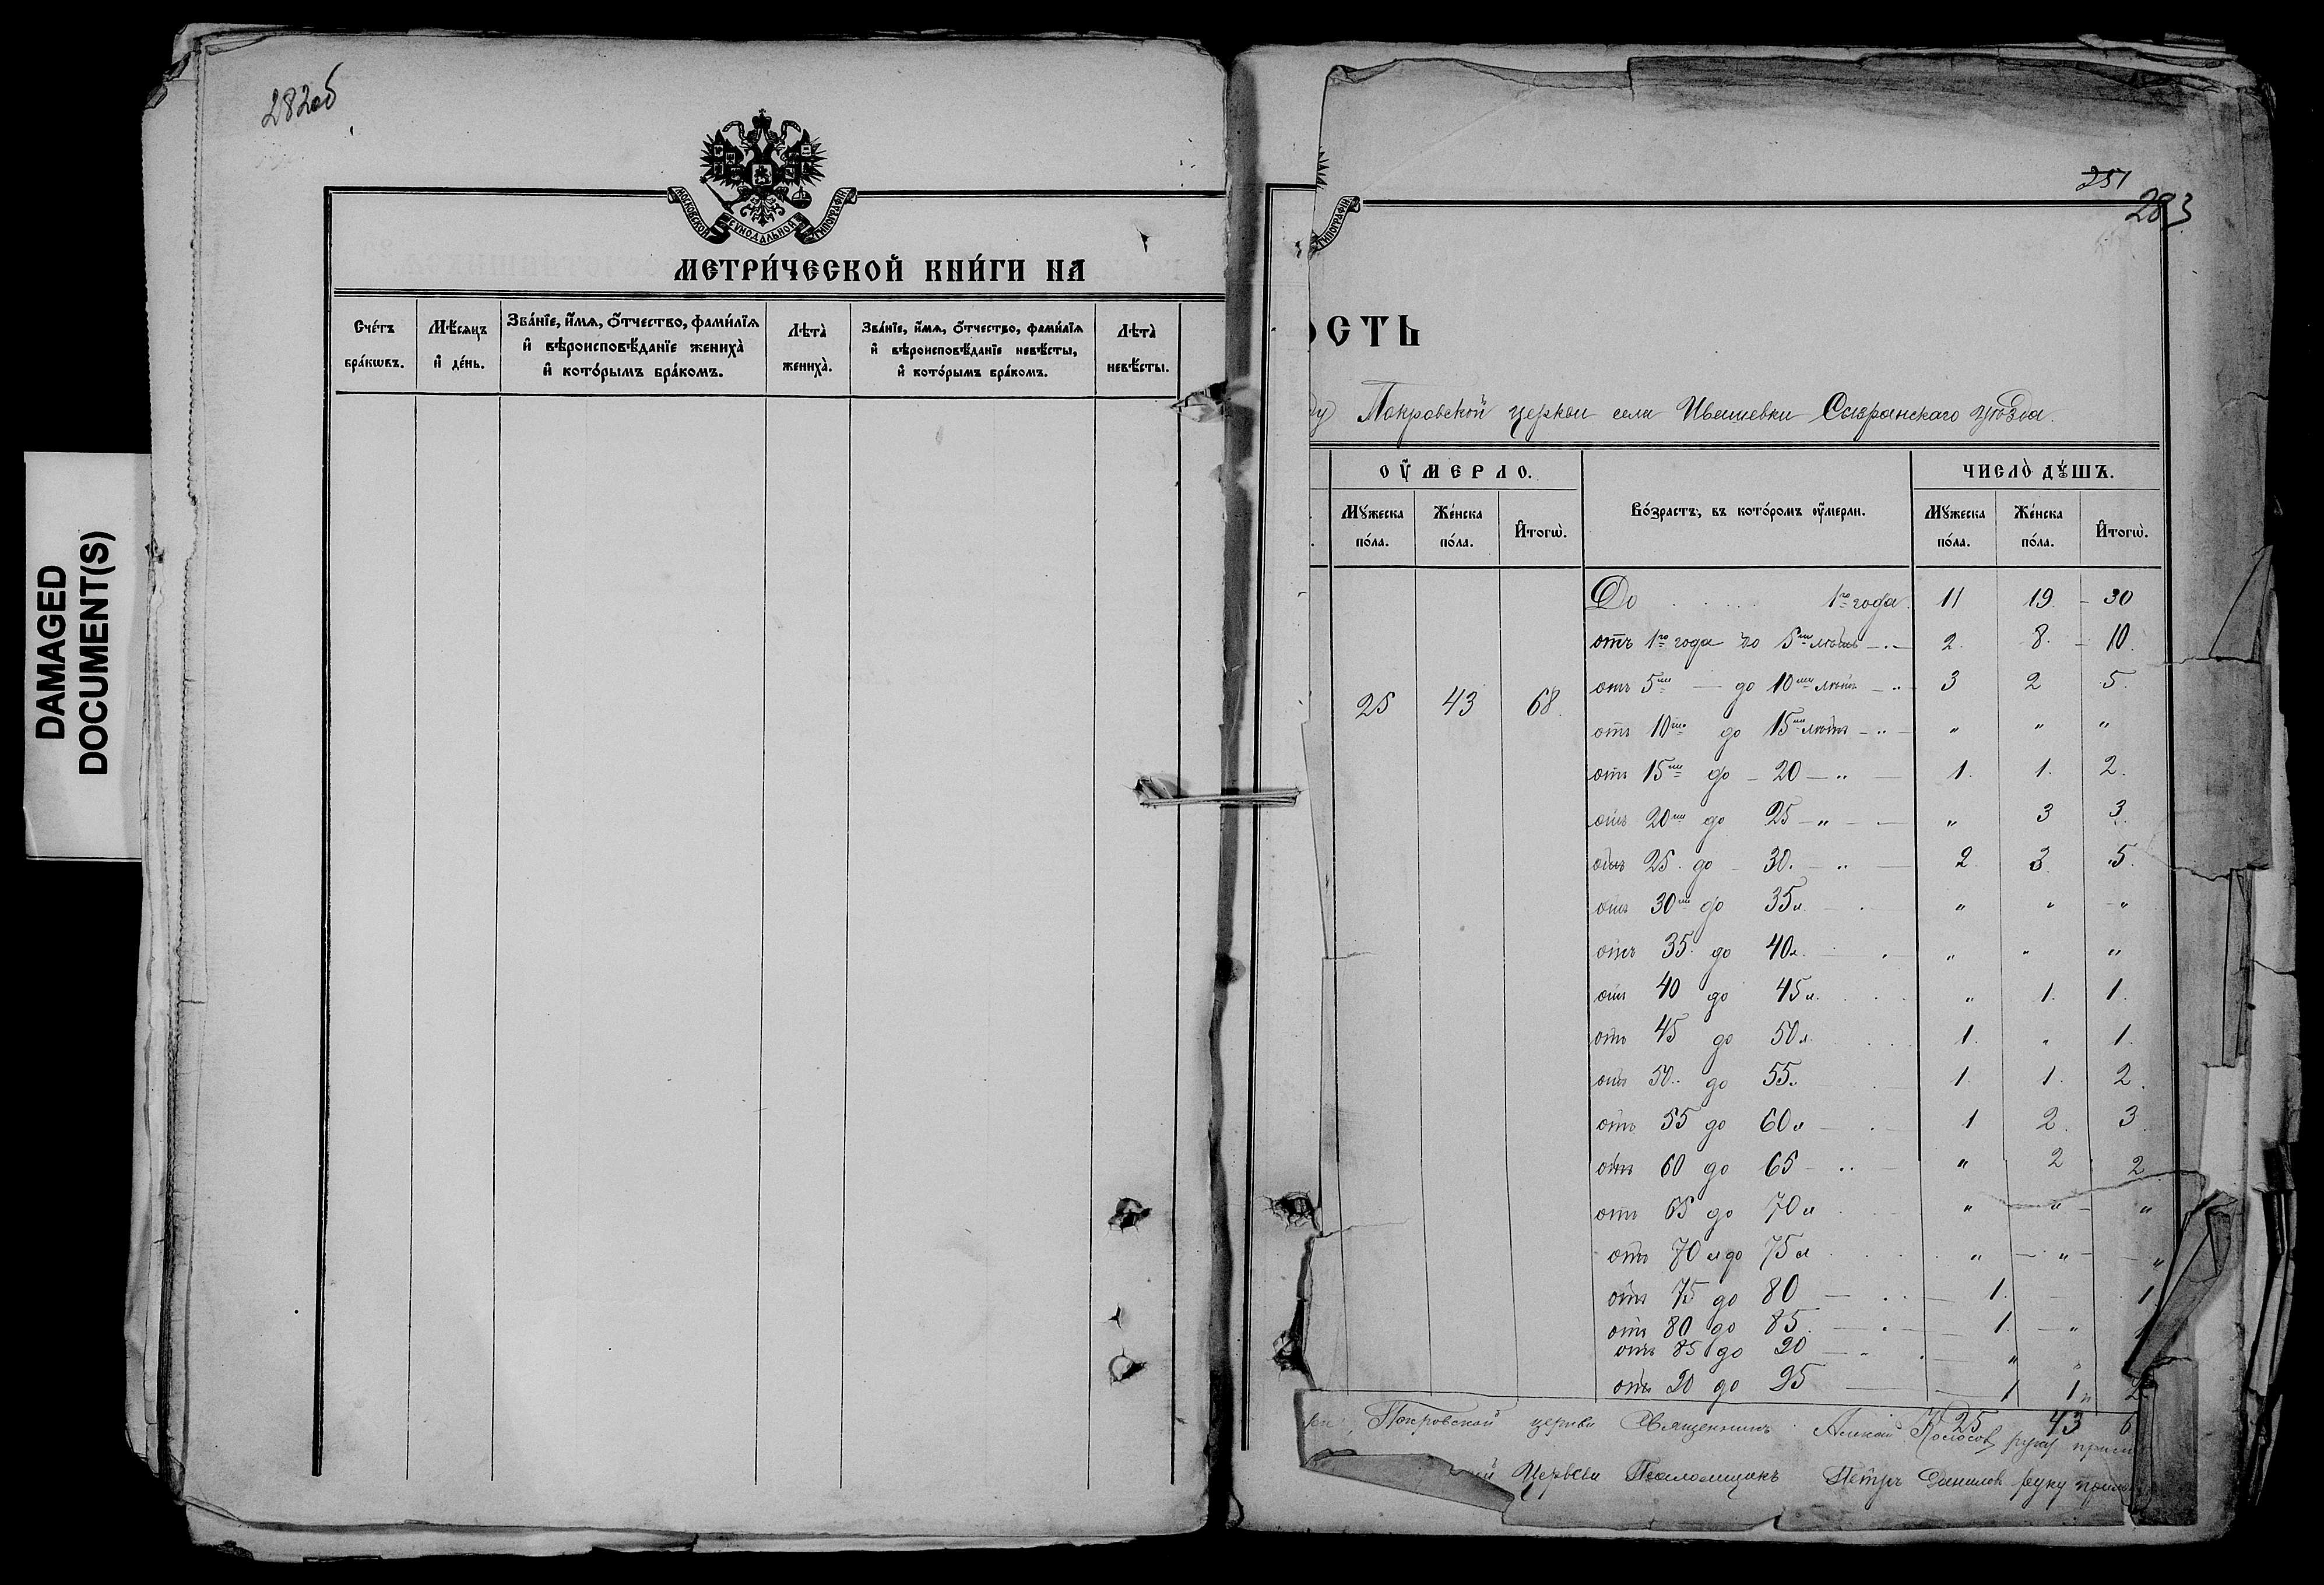 282об
МОСКОВСКОЙ СѴНОДАЛЬНОЙ ТИПОГРАФІИ
МЕТРИ́ЧЕСКОЙ КНИ́ГИ НА
Сче́тъ бра́кѡвъ.
Мѣ́сѧцъ и҆ де́нь.
Зва́нїе, и҆́мѧ, ѻ҆́тчество, фами́лїѧ и҆ вѣроисповѣ́данїе жениха̀ и҆ кото́рымъ бра́комъ.
Лѣта̀ жениха̀.
Зва́нїе, и҆́мѧ, ѻ҆́тчество, фами́лїѧ и҆ вѣроисповѣ́данїе невѣ́сты, и҆ кото́рымъ бра́комъ.
Лѣта̀ невѣ́сты.
251
283
ТИПОГРАФІИ
ОСТЬ
ду Покровской церкви села Ивашевки Сызранскаго уѣзда.
ОУ҆́МЕРЛО.
Мꙋ́жеска по́ла.
Же́нска по́ла.
И҆того̀.
Во́зрастъ, въ кото́ромъ оу҆́мерли.
ЧИСЛО̀ ДꙊ́ШЪ.
Мꙋ́жеска по́ла.
Же́нска по́ла.
И҆тогѡ̀.
25 43 68.
До . . . . . 1го года. 11 19 - 30
отъ 1го года до 5ти лѣтъ - . - 2. 8. - 10.
отъ 5ти - до 10ти лѣтъ - „ 3 2 5.
отъ 10ти до 15ти лѣтъ - „ - „ „ „
отъ 15ти до - 20 - „ - 1. 1. 2.
отъ 20ти до 25 - „ - „ 3 3.
отъ 25. до - 30. - „ - 2 3. 5.
отъ 30ти до 35 л. „ „ „
отъ 35. до 40 л. „ „ „
отъ 40 до 45 л. „ 1. 1.
отъ 45 до 50 л. 1. „ 1.
отъ 50. до 55 л. 1. 1. 2.
отъ 55 до 60 л - 1 2. 3.
отъ 60 до 65 - „ - „ 2 2
отъ 65 до 70 л „ „ - „
отъ 70 л до 75 л „ - „ - „
отъ 75 до 80 - 1. 1.
отъ 80 до 85. - 1. - „
отъ 85 до 90 - „ „ „
отъ 90 до 95 - 1 1 „ 2
25 43 6
Покровской церкви Священникъ Алексѣй Колосовъ руку прил
й Церкви Псаломщикъ Петръ Данилов руку прило
DAMAGED
DOCUMENT(S)